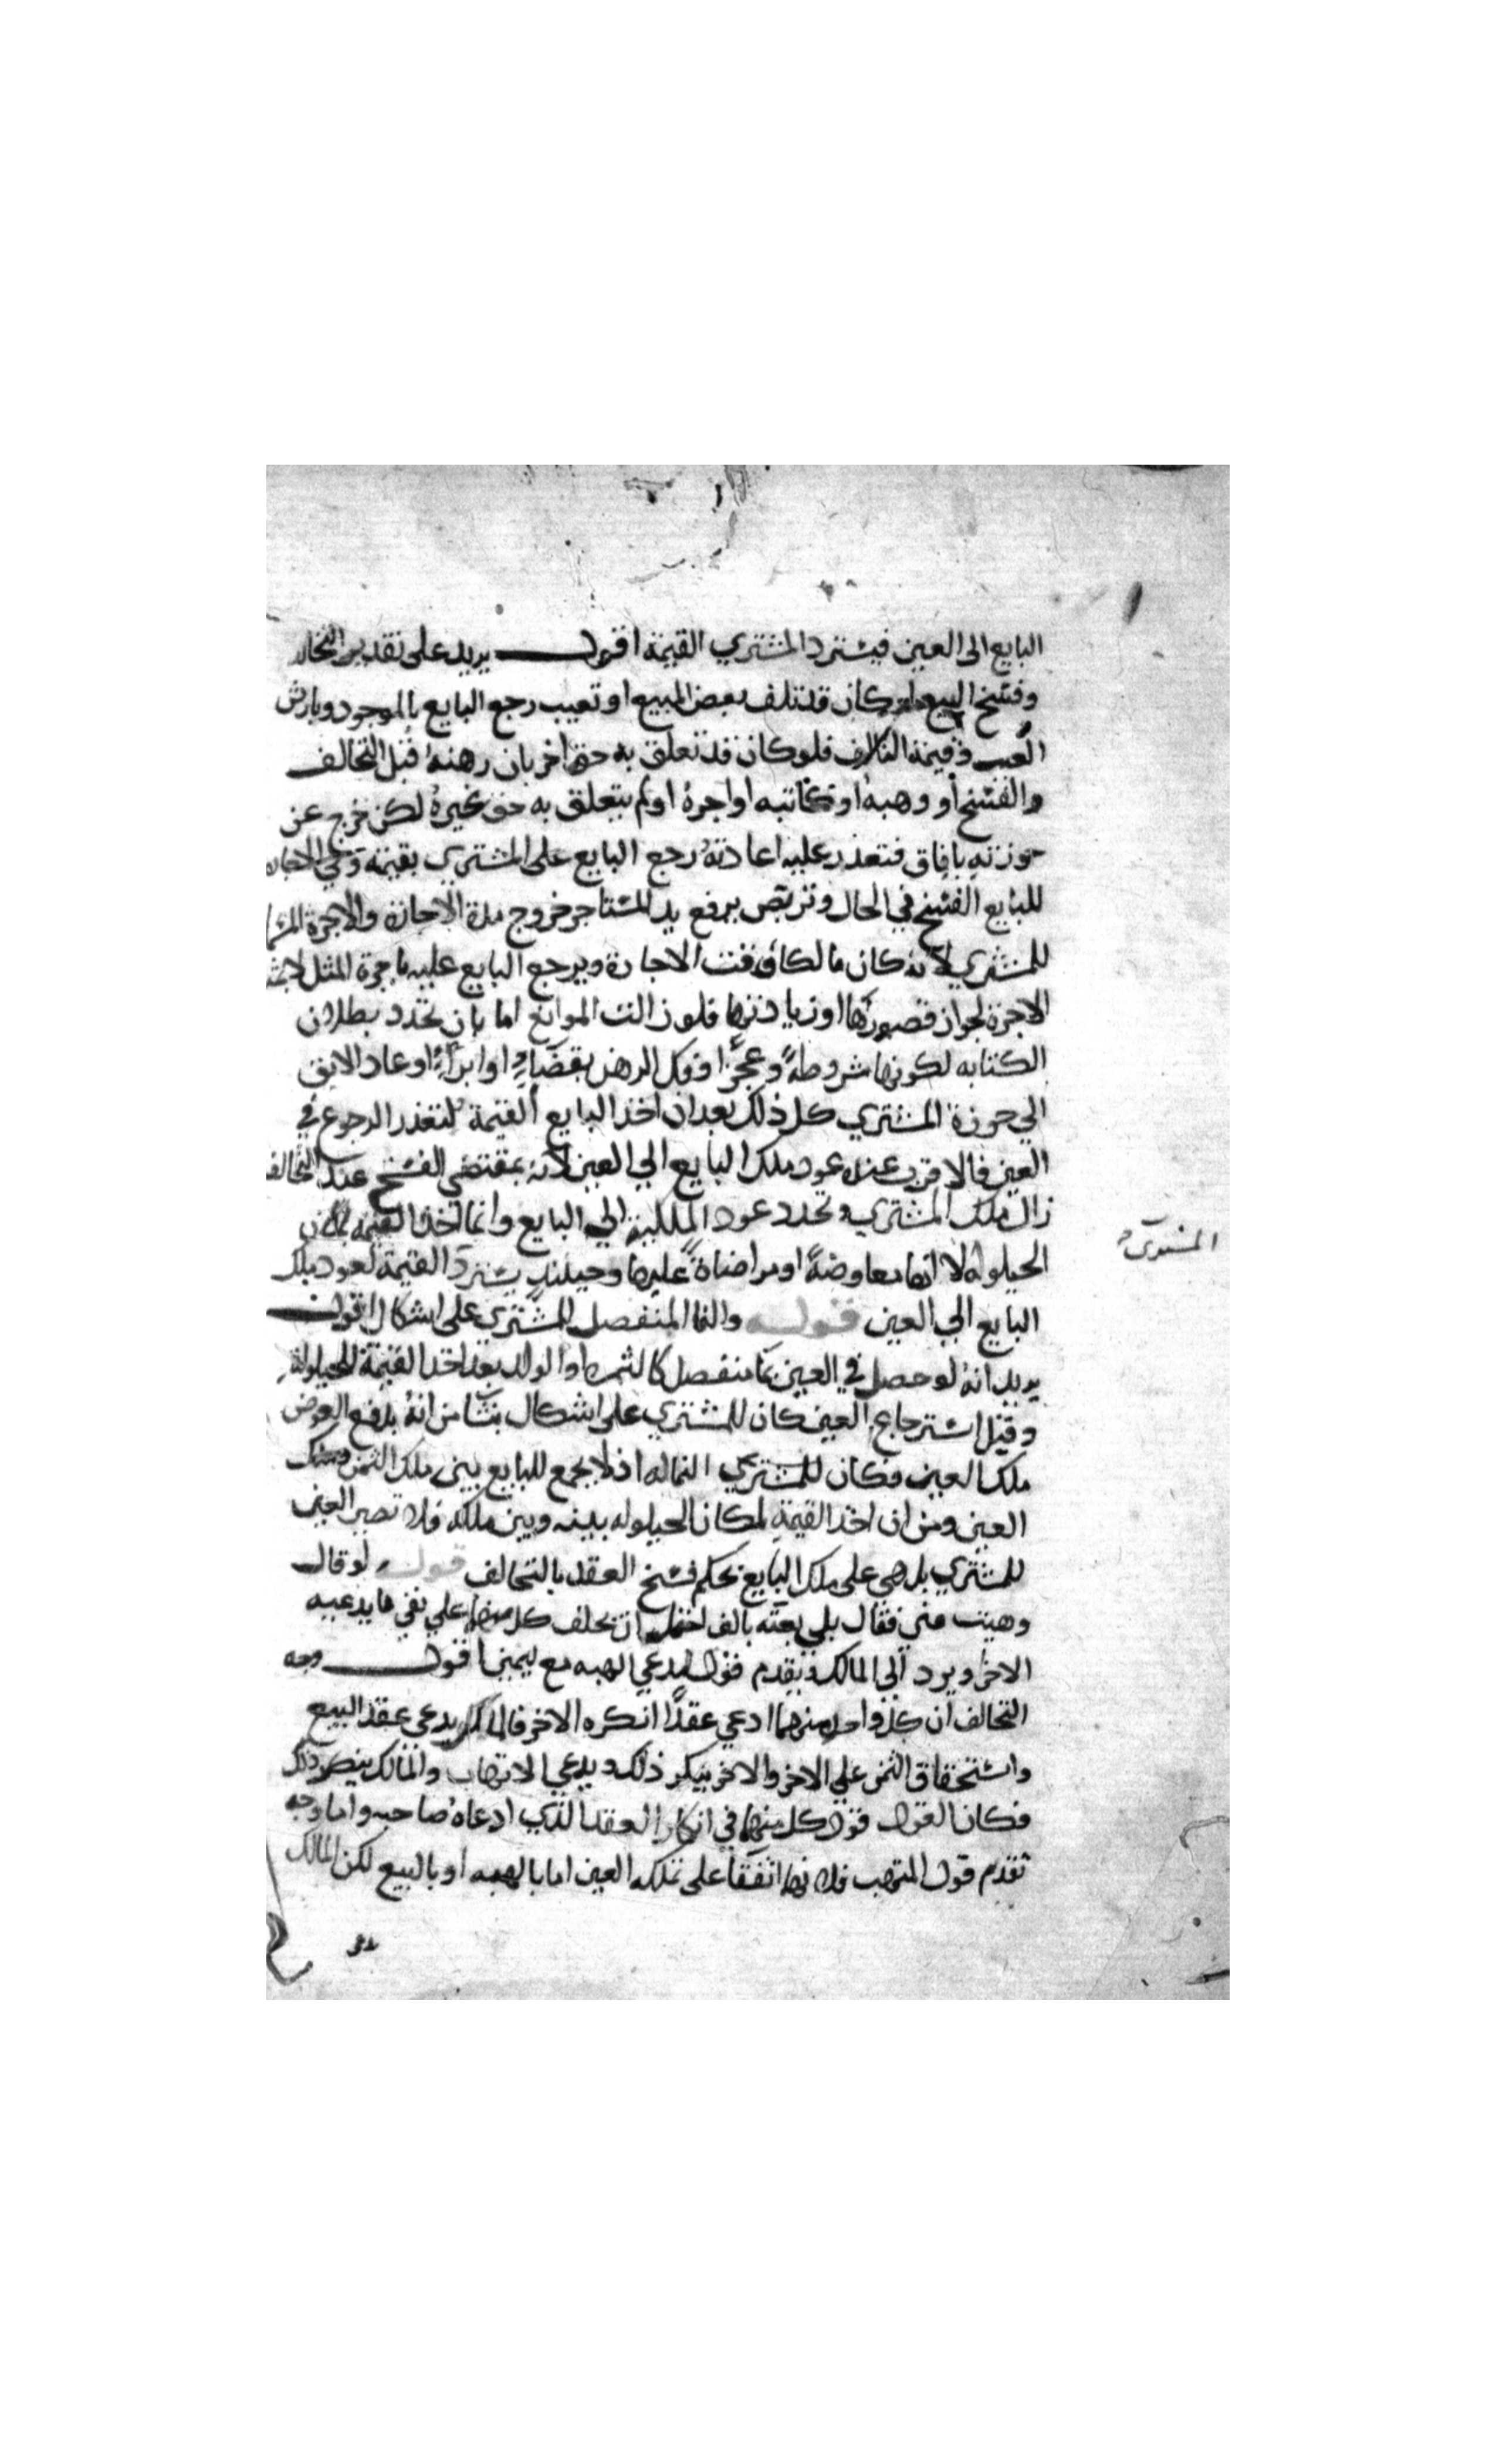 البايع الى العين فيسترد المشتري القيمة اقول يريد على تقدير التحالف
وفسخ البيع لو كان قد تلف بعض المبيع او تعيب رجع البايع بالموجود وبارش
العيب وقيمة التالف فلو كان قد تعلق به حق اخر بان رهنه قبل التحالف
والفسخ او وهبه او كاتبه او اجره او لم يتعلق به حق لغيره لكن خرج عن
حوزته باباق فتعذر عليه اعادته رجع البايع على المشتري بقيمته وفي الاجاره
للبايع الفسخ في الحال وتربص برفع يد المستاجر خروج مدة الاجازة والاجرة
للمشتري لانه كان مالكا وقت الاجارة ويرجع البايع عليه باجرة المثل
الاجرة لجواز قصورها او زيادتها فلو زالت الموانع اما بان تجدد بطلان
الكتابه لكونها مشروطة وعجز او فك الرهن بقضاء او ابراء او عاد الابق
الي حوزة المشتري كل ذلك بعد ان اخذ البايع القيمة لتعذر الرجوع في
العين فالاقرب عنده عود ملك البايع الي العين لانه بمقتضي الفسخ عند التحالف
زال ملك المشتري وتجدد عود الملكية الي البايع وانما اخذ القيمه لمكان
الحيلوله لا انها معاوضة او مراضاة عليها وحينئذ يسترد القيمة لعود ملك
المشتري
البايع الي العين قوله والنما المنفصل للمشتري على اشكال اقول
يريد انه لو حصل في العين نما منفصل كالثمره او الولد بعد اخذ القيمة للحيلولة
وقبل استرجاع العين كان للمشتري على اشكال ينشا من انه يدفع العوض
ملك العين فكان للمشتري النما له اذ لا يجمع للبايع بين ملك الثمن وملك
العين ومن ان اخذ القيمة لمكان الحيلوله بينه وبين ملكه فلا تصير العين
للمشتري بل هي على ملك البايع بحكم فسخ العقد بالتحالف قوله لو قال
وهبت مني فقال بلي بعته بالف احتمل ان يحلف كل منهما علي نفي ما يدعيه
الاخر ويرد الى المالك وتقدم قول مدعي الهبه مع اليمين اقول وجه
التحالف ان كل واحد منهما ادعي عقدا انكره الاخر فالمالك يدعي عقد البيع
واستحقاق الثمن علي الاخر والاخر ينكر ذلك ويدعي الاتهاب والمالك ينكر ذلك
فكان القول قول كل منهما في انكار العقد الذي ادعاه صاحبه واما وجه
تقدم قول المتهب فلانهما اتفقا على تملكه العين اما بالهبه او بالبيع لكن المالك